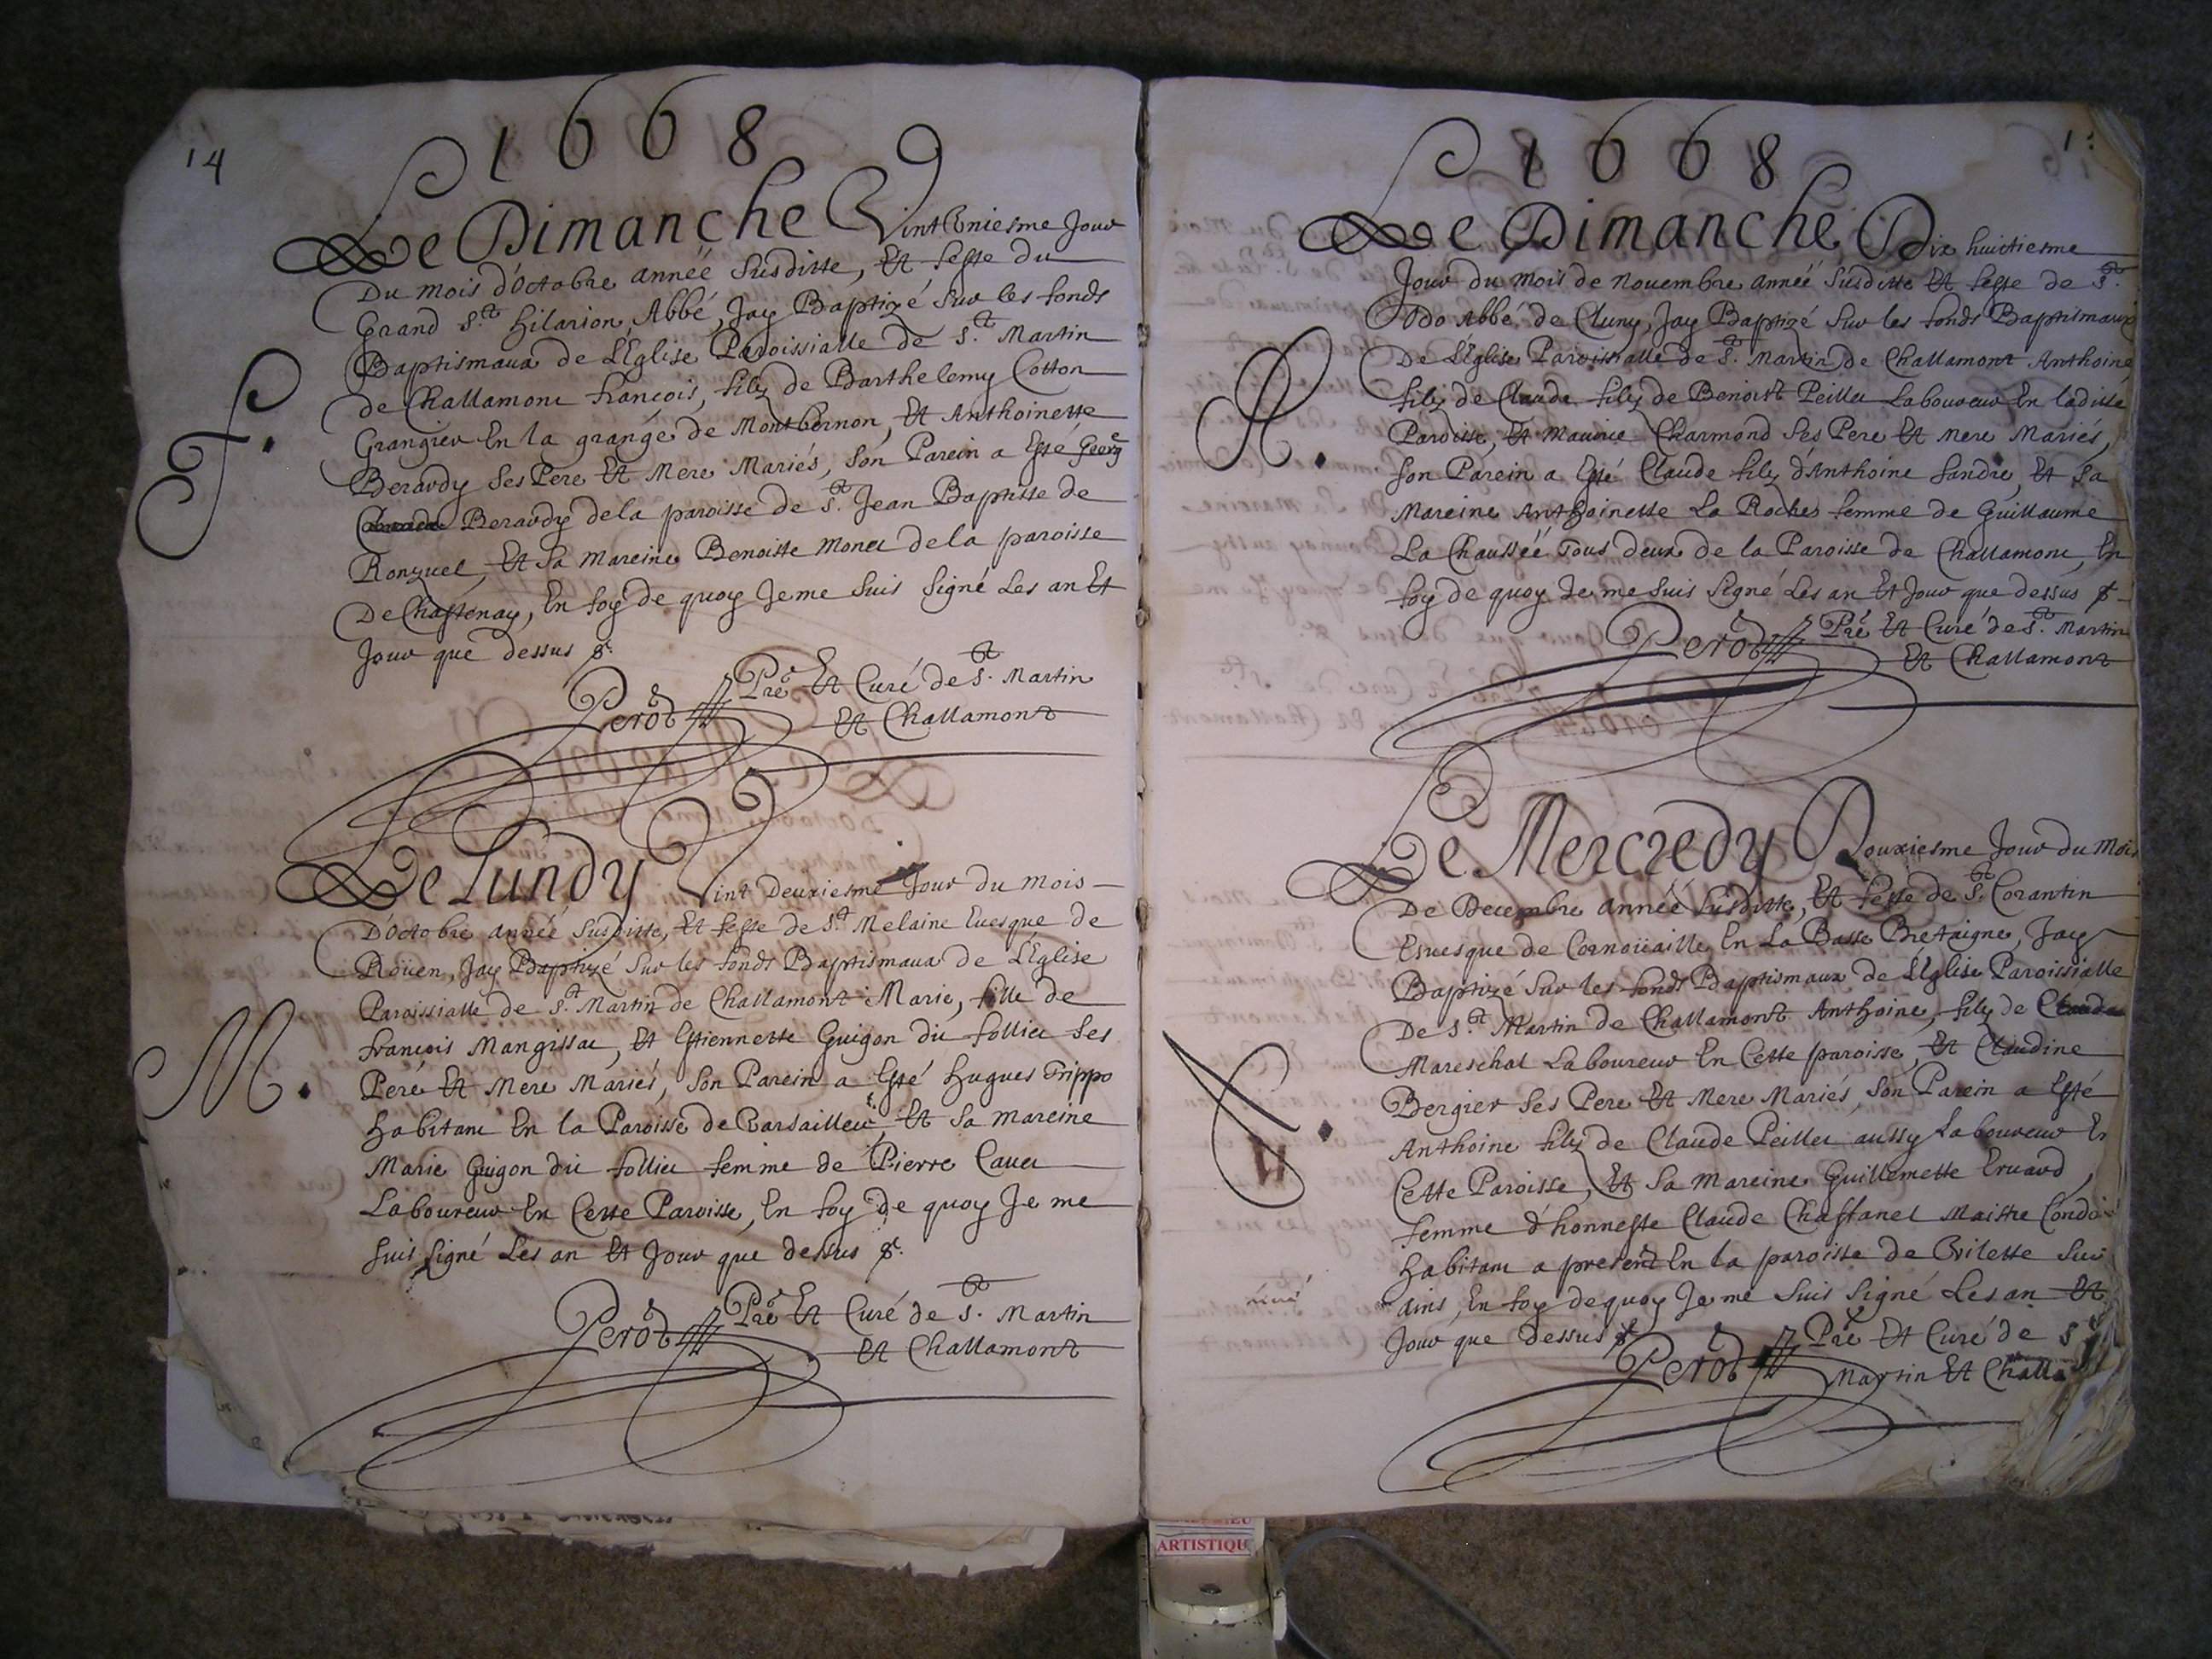 14
1668
Le Dimanche Vint Uniesme Jour
Du mois d'Octobre année Susditte, Et feste du
Grand St. Hilarion Abbé, Jay Baptizé Sur les fonds
Baptismaux de L'Eglise Paroissialle de St. Martin
de Challamont François, filz de Barthelemy Cotton
Grangier En la grange de Montbernon, Et Anthoinette
Berardy Ses Pere Et Mere Mariés, Son Parein a Esté Georg
Berardy dela paroisse de St. Jean Baptiste de
Ronzuel, Et Sa Mareine Benoiste Monet dela paroisse
De Chastenay, En foy de quoy Je me Suis Signé Les an Et
Jour que dessus
F.
Perod Pre Et Curé de St. Martin
Et Challamont
Le Lundy Vint Deuxiesme Jour du mois
D'Octobre année Susditte, Et feste de St. Melaine Evesque de
Roüen, Jay Baptizé Sur les fonds Baptismaux de L'Eglise
Paroissialle de St. Martin de Challamont Marie, fille de
François Mangissac, Et Estiennette Guigon du follier Ses
Pere Et Mere Mariés, Son Parein a Esté Hugues Trippo
habitant En la Paroisse de Versailleu, Et Sa mareine
Marie Guigon du follier femme de Pierre Cavet
Laboureur En Cette Paroisse, En foy de quoy Je me
Suis Signé Les an Et Jour que dessus
M.
Perod Pre Et Curé de St. Martin
Et Challamont
1668
Le Dimanche Dix huictiesme
Jour du Mois de Novembre année Susditte Et feste de St.
Odo Abbé de Cluny, Jay Baptizé Sur les fonds Baptismaux
De L'Eglise Paroissialle de St. Martin de Challamont Anthoine
filz de Claude filz de Benoist Peillet Laboureur En laditte
Paroisse, Et Maurice Charmond Ses Pere Et Mere Mariés,
Son Parein a Esté Claude filz d'Anthoine fandre, Et Sa
Mareine Anthoinette La Roches femme de Guillaume
La Chaussée Tous deux de la Paroisse de Challamont, En
foy de quoy Je me Suis Signé Les an Et Jour que dessus
A.
Perod Pre Et Curé de St. Martin
Et Challamont
Le Mercredy Douxiesme Jour du Mois
De Decembre année Susditte, Et feste de St. Corantin
Evesque de Cornoüaille En La Basse Bretaigne, Jay
Baptizé Sur les fonds Baptismaux de L'Eglise Paroissialle
De St. Martin de Challamont Anthoine, filz de Claude
Mareschal Laboureur En Cette paroisse, Et Claudine
Bergier Ses Pere Et Mere Mariés, Son Parein a Esté
Anthoine filz de Claude Peillet aussy Laboureur En
Cette Paroisse, Et Sa Mareine Guillemette Eruard
femme d'honneste Claude Chaffanel Maistre
habitant a present En la paroisse de Vilette Sur
ains, En foy dequoy Je me Suis Signé Les an Et
Jour que dessus
A.
Perod Pre Et Curé de St
Martin Et Challa
ARTISTIQU